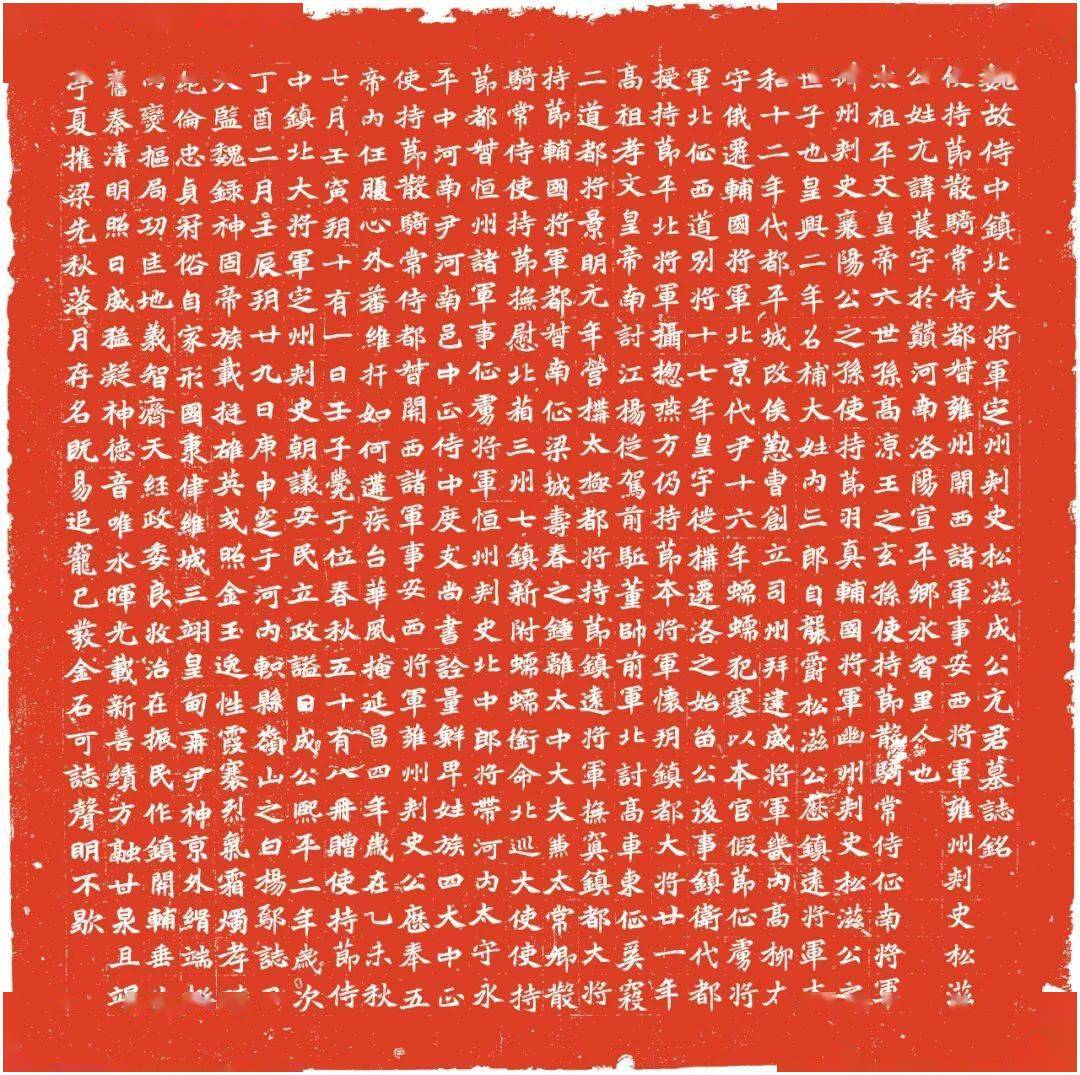 魏故侍中鎮北大將軍定州刺史松滋成公元君墓誌銘
使持節散騎常侍都督雍州開西諸軍事安西將軍雍州刺史松滋
公姓元諱萇字於巔河南洛陽宣平鄉永智里人也
太祖平文皇帝六世孫高涼王之玄孫使持節散騎常侍征南將軍
肆州刺史襄陽公之孫使持節羽真輔國將軍幽州刺史松滋公之
世子也皇興二年召補大姓內三郎自襲爵松滋公歷鎮遠將軍太
和十二年代都平城改俟懃曹創立司州拜建威將軍畿內高柳太
守俄遷輔國將軍北京代尹十六年蠕蠕犯塞以本官假節征虜將
軍北征西道別將十七年皇宇徙構遷洛之始留公後事鎮衛代都
授持節平北將軍攝揔燕方仍持節本將軍懷朔鎮都大將廿一年
高祖孝文皇帝南討江揚從駕前駈董帥前軍北討高車東征奚寇
二道都將景明元年營構太極都將持節鎮遠將軍撫冥鎮都大將
持節輔國將軍都督南征梁城壽春之鍾離太中大夫兼太常卿散
騎常侍使持節撫慰北箱三州七鎮新附蠕蠕銜命北巡大使使持
節都督恒州諸軍事征虜將軍恒州刺史北中郎將帶河內太守永
平中河南尹河南邑中正侍中度支尚書詮量鮮卑姓族四大中正
使持節散騎常侍都督開西諸軍事安西將軍雍州刺史公歷奉五
帝內任腹心外蕃維扞如何遘疾台華風掩延昌四年歲在乙未秋
七月壬寅朔十有一日壬子薨于位春秋五十有八冊贈使持節侍
中鎮北大將軍定州刺史朝議安民立政謚曰成公熙平二年歲次
丁酉二月壬辰朔廿九日庚申窆于河內軹縣嶺山之白楊鄔誌曰
大監魏錄神固帝族載挺雄英或照金玉逸性霞褰烈氣霜燭孝
紀倫忠貞冠俗自家形國秉律維城三翊皇甸再尹神京外緝端
內燮樞局功匡地義智濟天經政委良牧治在振民作鎮開輔垂
舊秦清明照日威猛凝神德音唯永暉光載新善績方融甘泉且竭
亭夏摧梁先秋落月存名既易追寵已發金石可誌聲明不歇